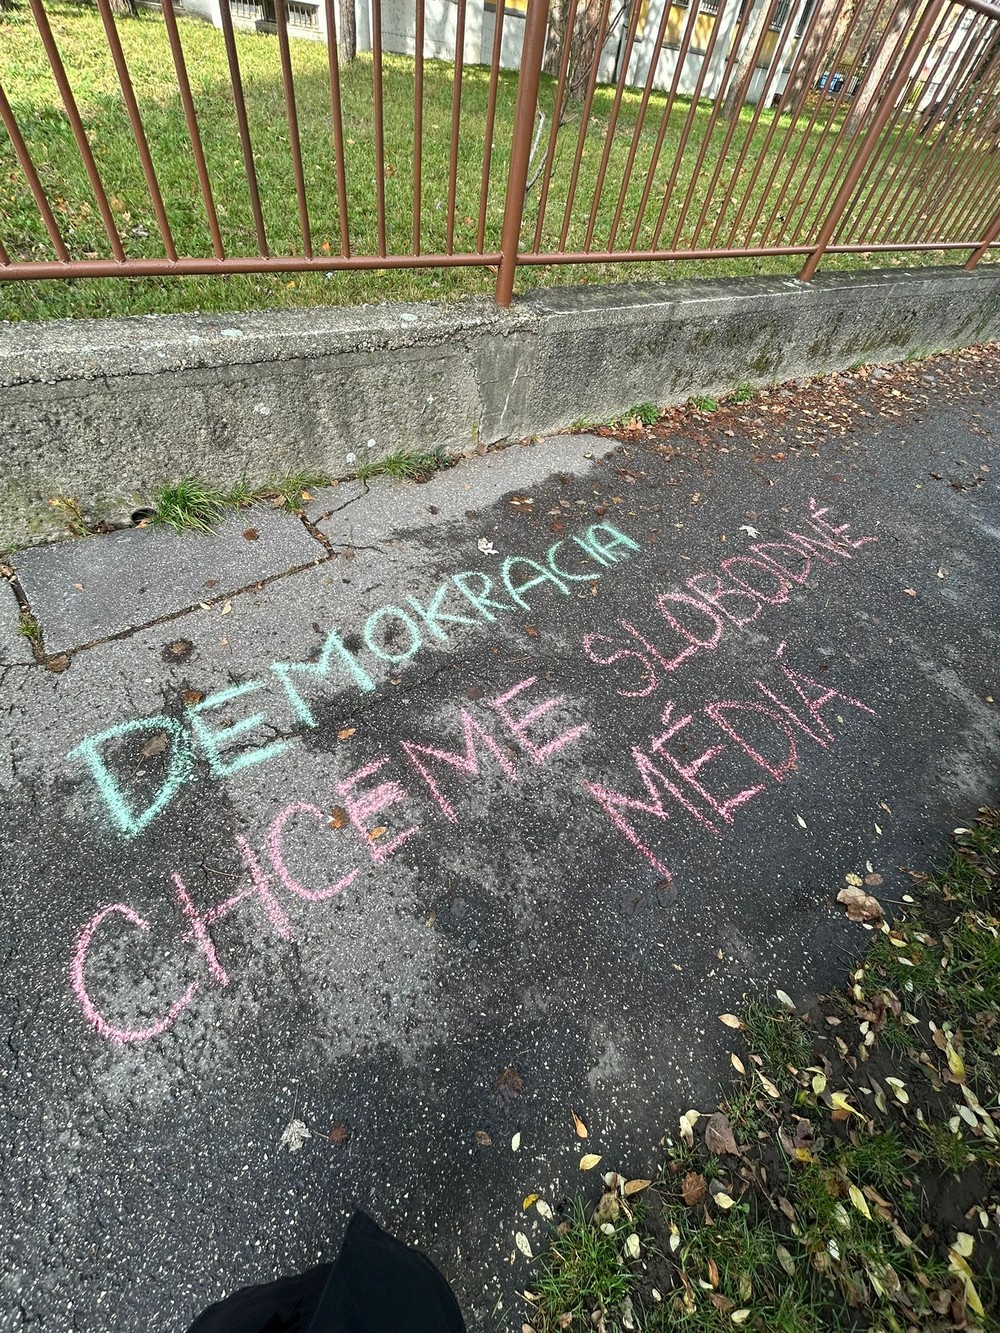 DEMOKRACIA
CHCEME SLOBODNÉ
MÉDIÁ